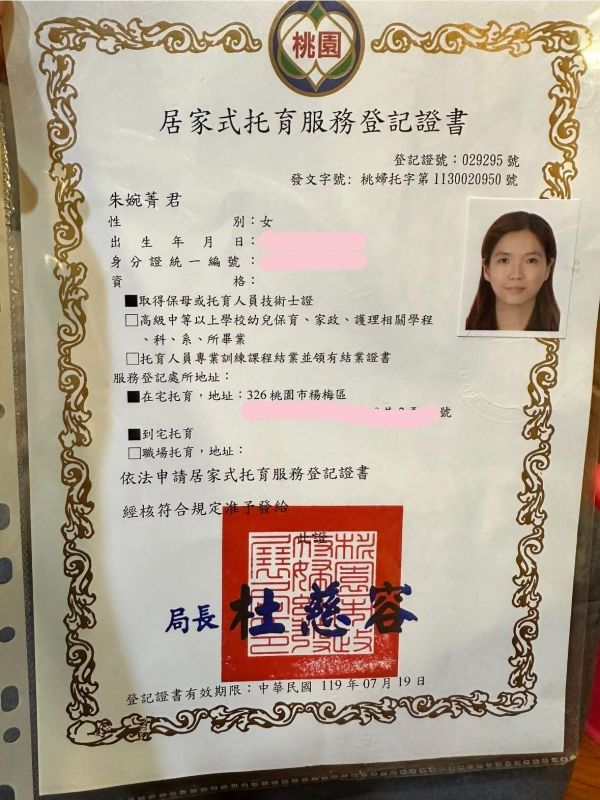 桃園
居家式托育服務登記證書
登記證號：029295 號
發文字號：桃婦托字第 1130020950 號
朱婉菁 君
性別：女
出生年月日：
身分證統一編號：
資格：
■取得保母或托育人員技術士證
□高級中等以上學校幼兒保育、家政、護理相關學程
、科、系、所畢業
□托育人員專業訓練課程結業並領有結業證書
服務登記處所地址：
■在宅托育，地址：326 桃園市楊梅區
號
■到宅托育
□職場托育，地址：
依法申請居家式托育服務登記證書
經核符合規定准予發給
此證
局長 杜慈容
登記證書有效期限：中華民國 119 年 07 月 19 日